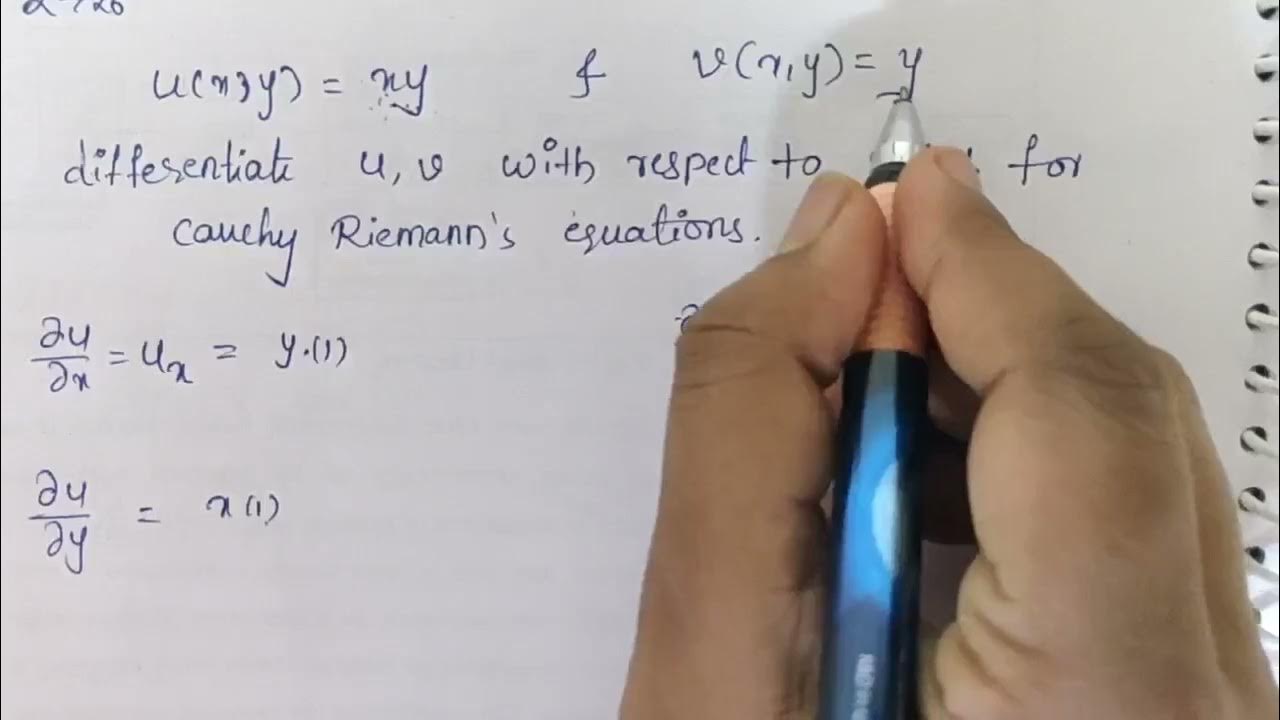 u(x,y) = xy & v(x,y) = y
differentiate u, v with respect to for
cauchy Riemann's equations.
∂u/∂x = u_x = y.(1)
∂u/∂y = x(1)